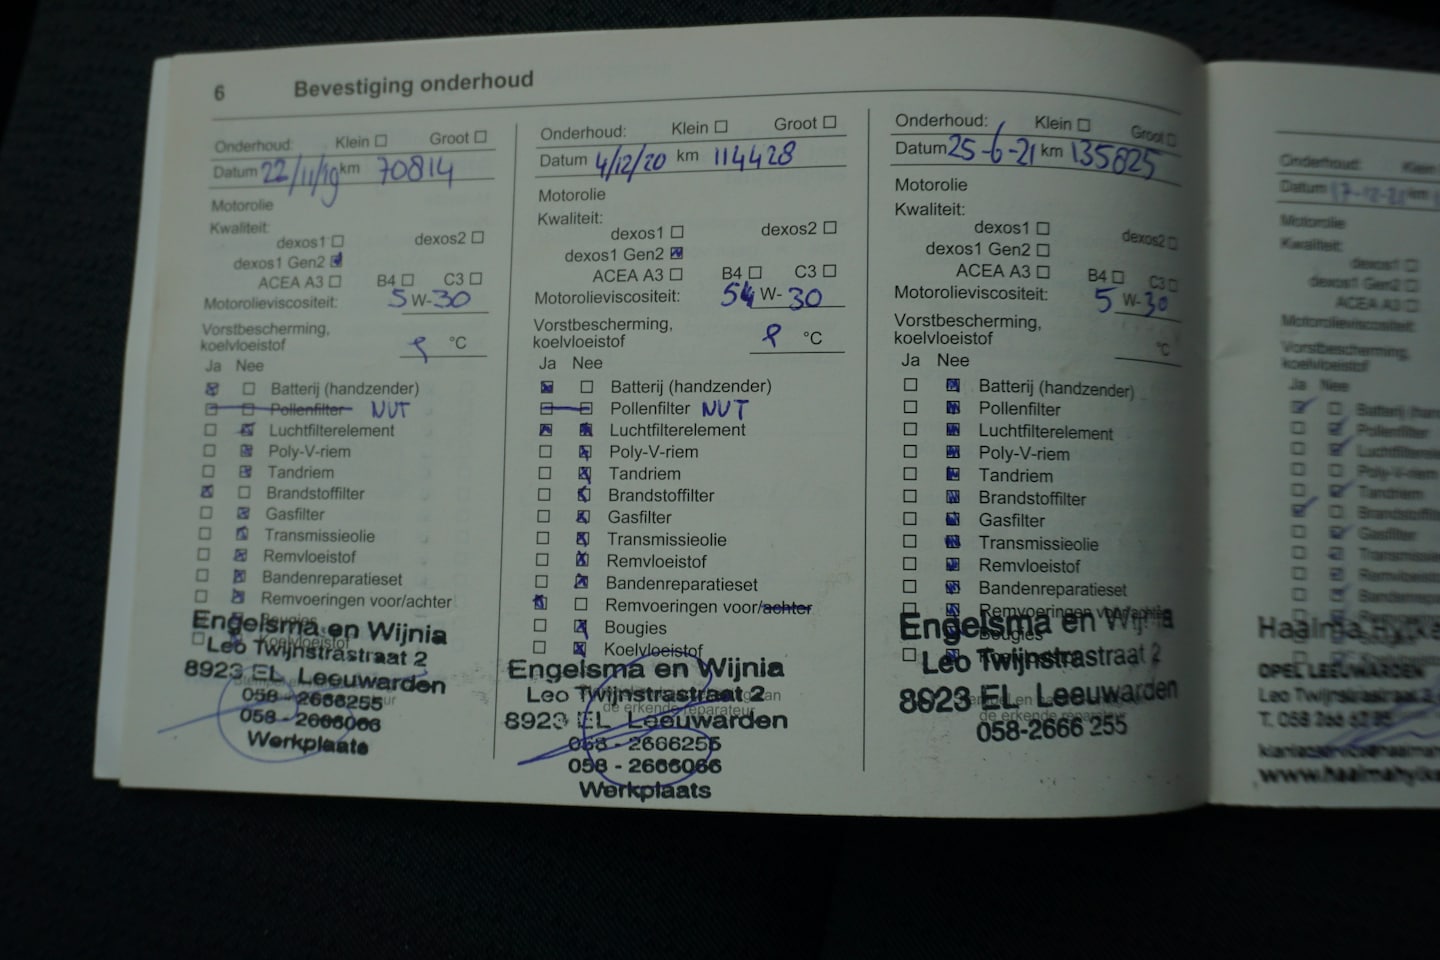 6 Bevestiging onderhoud
Onderhoud: Klein ☐ Groot ☐
Datum 22/11/19 km 70814
Motorolie
Kwaliteit:
dexos1 ☐ dexos2 ☐
dexos1 Gen2 ☒
ACEA A3 ☐ B4 ☐ C3 ☐
Motorolieviscositeit: 5 W-30
Vorstbescherming,
koelvloeistof °C
Ja Nee
☒ ☐ Batterij (handzender)
☐ ☐ Pollenfilter NVT
☐ ☒ Luchtfilterelement
☐ ☒ Poly-V-riem
☐ ☒ Tandriem
☒ ☐ Brandstoffilter
☐ ☒ Gasfilter
☐ ☒ Transmissieolie
☐ ☒ Remvloeistof
☐ ☒ Bandenreparatieset
☐ ☒ Remvoeringen voor/achter
Bougies
Koelvloeistof
Engelsma en Wijnia
Leo Twijnstrastraat 2
8923 EL Leeuwarden
058 - 2666255
058 - 2666066
Werkplaats
Onderhoud: Klein ☐ Groot ☐
Datum 4/12/20 km 114428
Motorolie
Kwaliteit:
dexos1 ☐ dexos2 ☐
dexos1 Gen2 ☒
ACEA A3 ☐ B4 ☐ C3 ☐
Motorolieviscositeit: 5 W-30
Vorstbescherming,
koelvloeistof °C
Ja Nee
☒ ☐ Batterij (handzender)
☐ ☐ Pollenfilter NVT
☒ ☒ Luchtfilterelement
☐ ☒ Poly-V-riem
☐ ☒ Tandriem
☐ ☒ Brandstoffilter
☐ ☒ Gasfilter
☐ ☒ Transmissieolie
☐ ☒ Remvloeistof
☐ ☒ Bandenreparatieset
☒ ☐ Remvoeringen voor/achter
☐ ☒ Bougies
☐ ☒ Koelvloeistof
de erkende reparateur
Engelsma en Wijnia
Leo Twijnstrastraat 2
8923 EL Leeuwarden
058 - 2666255
058 - 2666066
Werkplaats
Onderhoud: Klein ☐ Groot ☐
Datum 25-6-21 km 135625
Motorolie
Kwaliteit:
dexos1 ☐ dexos2 ☐
dexos1 Gen2 ☐
ACEA A3 ☐ B4 ☐ C3 ☐
Motorolieviscositeit: 5 W-30
Vorstbescherming,
koelvloeistof °C
Ja Nee
☐ ☒ Batterij (handzender)
☐ ☒ Pollenfilter
☐ ☒ Luchtfilterelement
☐ ☒ Poly-V-riem
☐ ☒ Tandriem
☐ ☒ Brandstoffilter
☐ ☒ Gasfilter
☐ ☒ Transmissieolie
☐ ☒ Remvloeistof
☐ ☒ Bandenreparatieset
☐ ☒ Remvoeringen voor/achter
Bougies
de erkende reparateur
Engelsma en Wijnia
Leo Twijnstrastraat 2
8923 EL Leeuwarden
058-2666 255
Onderhoud: Klein
Datum 17-12-21 km
Motorolie
Kwaliteit:
dexos1 ☐
dexos1 Gen2 ☐
ACEA A3 ☐
Motorolieviscositeit:
Vorstbescherming,
koelvloeistof
Ja Nee
☒ ☐ Batterij
☐ ☒ Pollenfilter
☐ ☒
☐ ☐ Poly-V-riem
☐ ☒ Tandriem
☒ ☐
☐ ☒ Gasfilter
Haaima
OPEL LEEUWARDEN
Leo Twijnstrastraat 2
T. 058 266 62 55